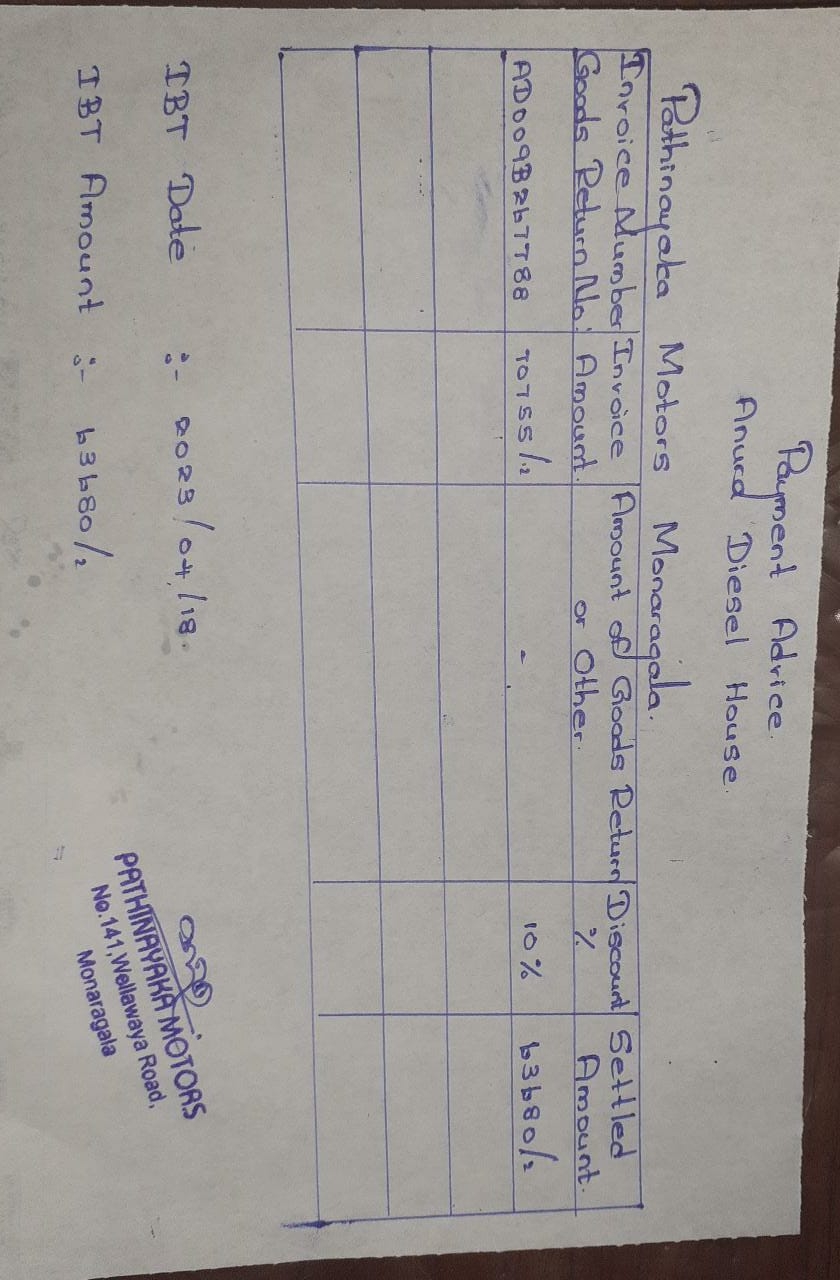 Payment Advice.
Anura Diesel House.
Pathinayaka Motors Monaragala.
Invoice Number Goods Return No: | Invoice Amount. | Amount of Goods Return or Other. | Discount % | Settled Amount.
AD009B267788 | 70755/= | - | 10% | 63680/=
IBT Date :- 2023/04/18.
IBT Amount :- 63680/=
PATHINAYAKA MOTORS
No.141, Wellawaya Road,
Monaragala